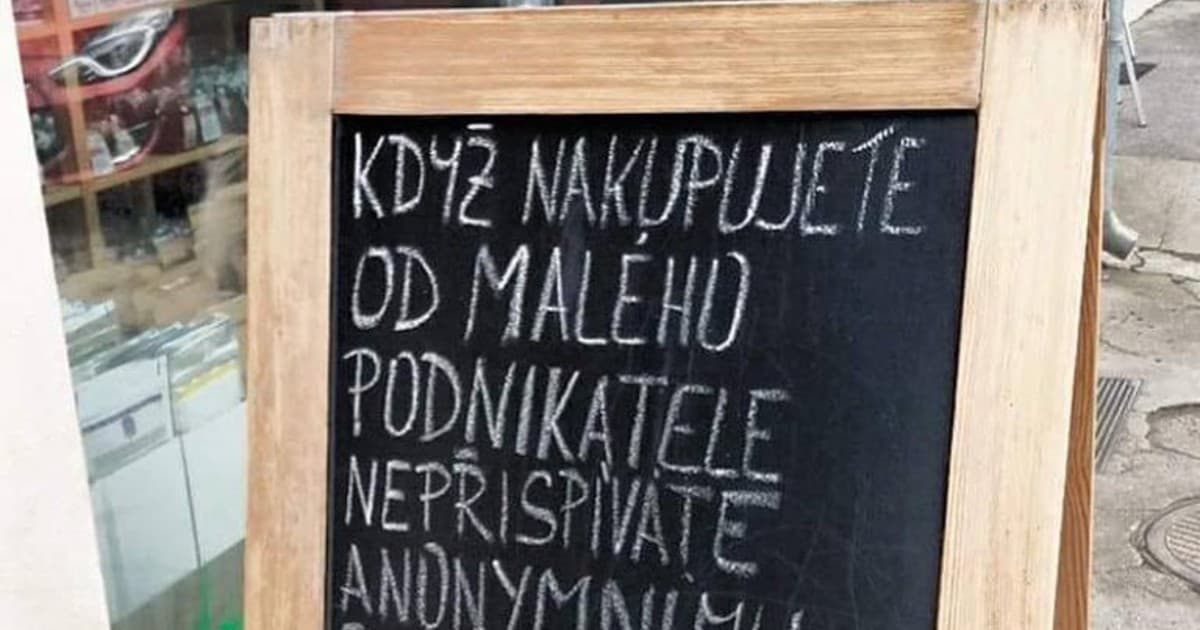 KDYŽ NAKUPUJETE
OD MALÉHO
PODNIKATELE
NEPŘISPÍVÁTE
ANONYMNÍMU